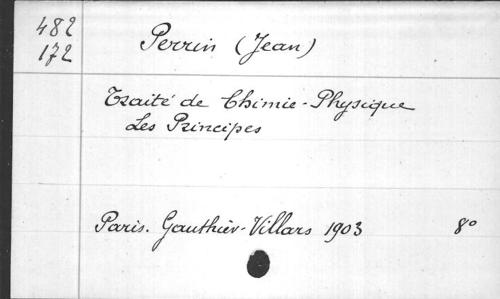 482
172
Perrin (Jean)
Traité de Chimie-Physique
Les Principes
Paris. Gauthier-Villars 1903 8°